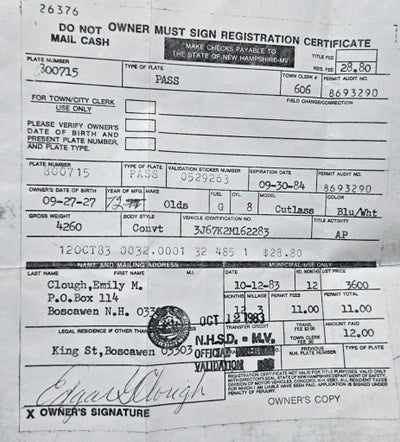 26376
DO NOT MAIL CASH
OWNER MUST SIGN REGISTRATION CERTIFICATE
MAKE CHECKS PAYABLE TO
THE STATE OF NEW HAMPSHIRE-MV
TITLE FEE
REG. FEE 28.80
PLATE NUMBER TYPE OF PLATE TOWN CLERK # PERMIT AUDIT NO.
800715 PASS 606 8693290
FOR TOWN/CITY CLERK USE ONLY
FIELD CHANGE/CORRECTION
PLEASE VERIFY OWNER'S
DATE OF BIRTH AND
PRESENT PLATE NUMBER,
AND PLATE TYPE.
PLATE NUMBER TYPE OF PLATE VALIDATION STICKER NUMBER EXPIRATION DATE PERMIT AUDIT NO.
800715 PASS 0529263 09-30-84 8693290
OWNER'S DATE OF BIRTH YEAR OF MFG. MAKE FUEL CYL. MODEL COLOR
09-27-27 72 Olds G 8 Cutlass Blu/Wht
GROSS WEIGHT BODY STYLE VEHICLE IDENTIFICATION NO. TITLE ACTIVITY
4260 Convt 3J67K2M162283 AP
12OCT83 0032.0001 32 485 1 $28.80
NAME AND MAILING ADDRESS MUNICIPAL USE ONLY
LAST NAME FIRST NAME M.I. DATE NO. MONTHS LIST PRICE
Clough, Emily M. 10-12-83 12 3600
P.O.Box 114
MONTHS MILEAGE PERMIT FEES PERMIT TOTAL
Boscawen N.H. 12 11.00 11.00
OCT 12 1983
LEGAL RESIDENCE IF OTHER THAN
TRANSFER CREDIT AMOUNT PAID
12.00
N.H.S.D. - M.V.
King St, Boscawen 03303
OFFICIAL
VALIDATION
TOWN CLERK FEE
PREVIOUS N.H. PLATE NUMBER TYPE OF PLATE
Edgar Clough
X OWNER'S SIGNATURE
OWNER'S COPY